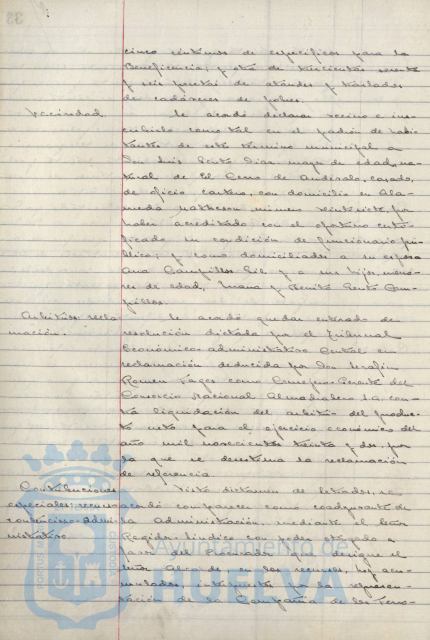 cinco céntimos de específicos para la
Beneficencia; y otra de trescientas setenta
y seis pesetas de ataudes y traslados
de cadáveres de pobres.
Vecindad. Se acordó declarar vecino e ins-
cribirlo como tal en el padrón de habi-
tantes de este término municipal a
Don Luis Díaz mayor de edad, na-
tural de El Cerro de Andévalo, casado,
de oficio cartero, con domicilio en Ala-
meda número veintisiete, por
haber acreditado con el oportuno certi-
ficado su condición de funcionario pú-
blico; y como domiciliados a su esposa
Ana Campillos Gil y a sus hijos, meno-
res de edad, María y Benito Cam-
pillos.
Arbitrios: recla- Se acordó quedar enterado de
mación. resolución dictada por el Tribunal
Económico-administrativo Central en
reclamación deducida por Don Serafín
Romeu Fages como Consejero-Gerente del
Consorcio Nacional Almadrabero S.A. con-
tra liquidación del arbitrio del produc-
to neto para el ejercicio económico del
año mil novecientos treinta y dos, por
la que se desestima la reclamación
de referencia.
Contribuciones Visto dictamen de letrados, se
especiales: recurso acordó comparecer como coadyuvante de
contencioso-admi- la Administración, mediante el Señor
nistrativo. Regidor Síndico con poder otorgado a
favor del Procurador que designe el
Señor Alcalde en los recursos, hoy acu-
mulados, interpuestos por la represen-
tación de la Compañía de los Ferro-
Ayuntamiento de
HUELVA